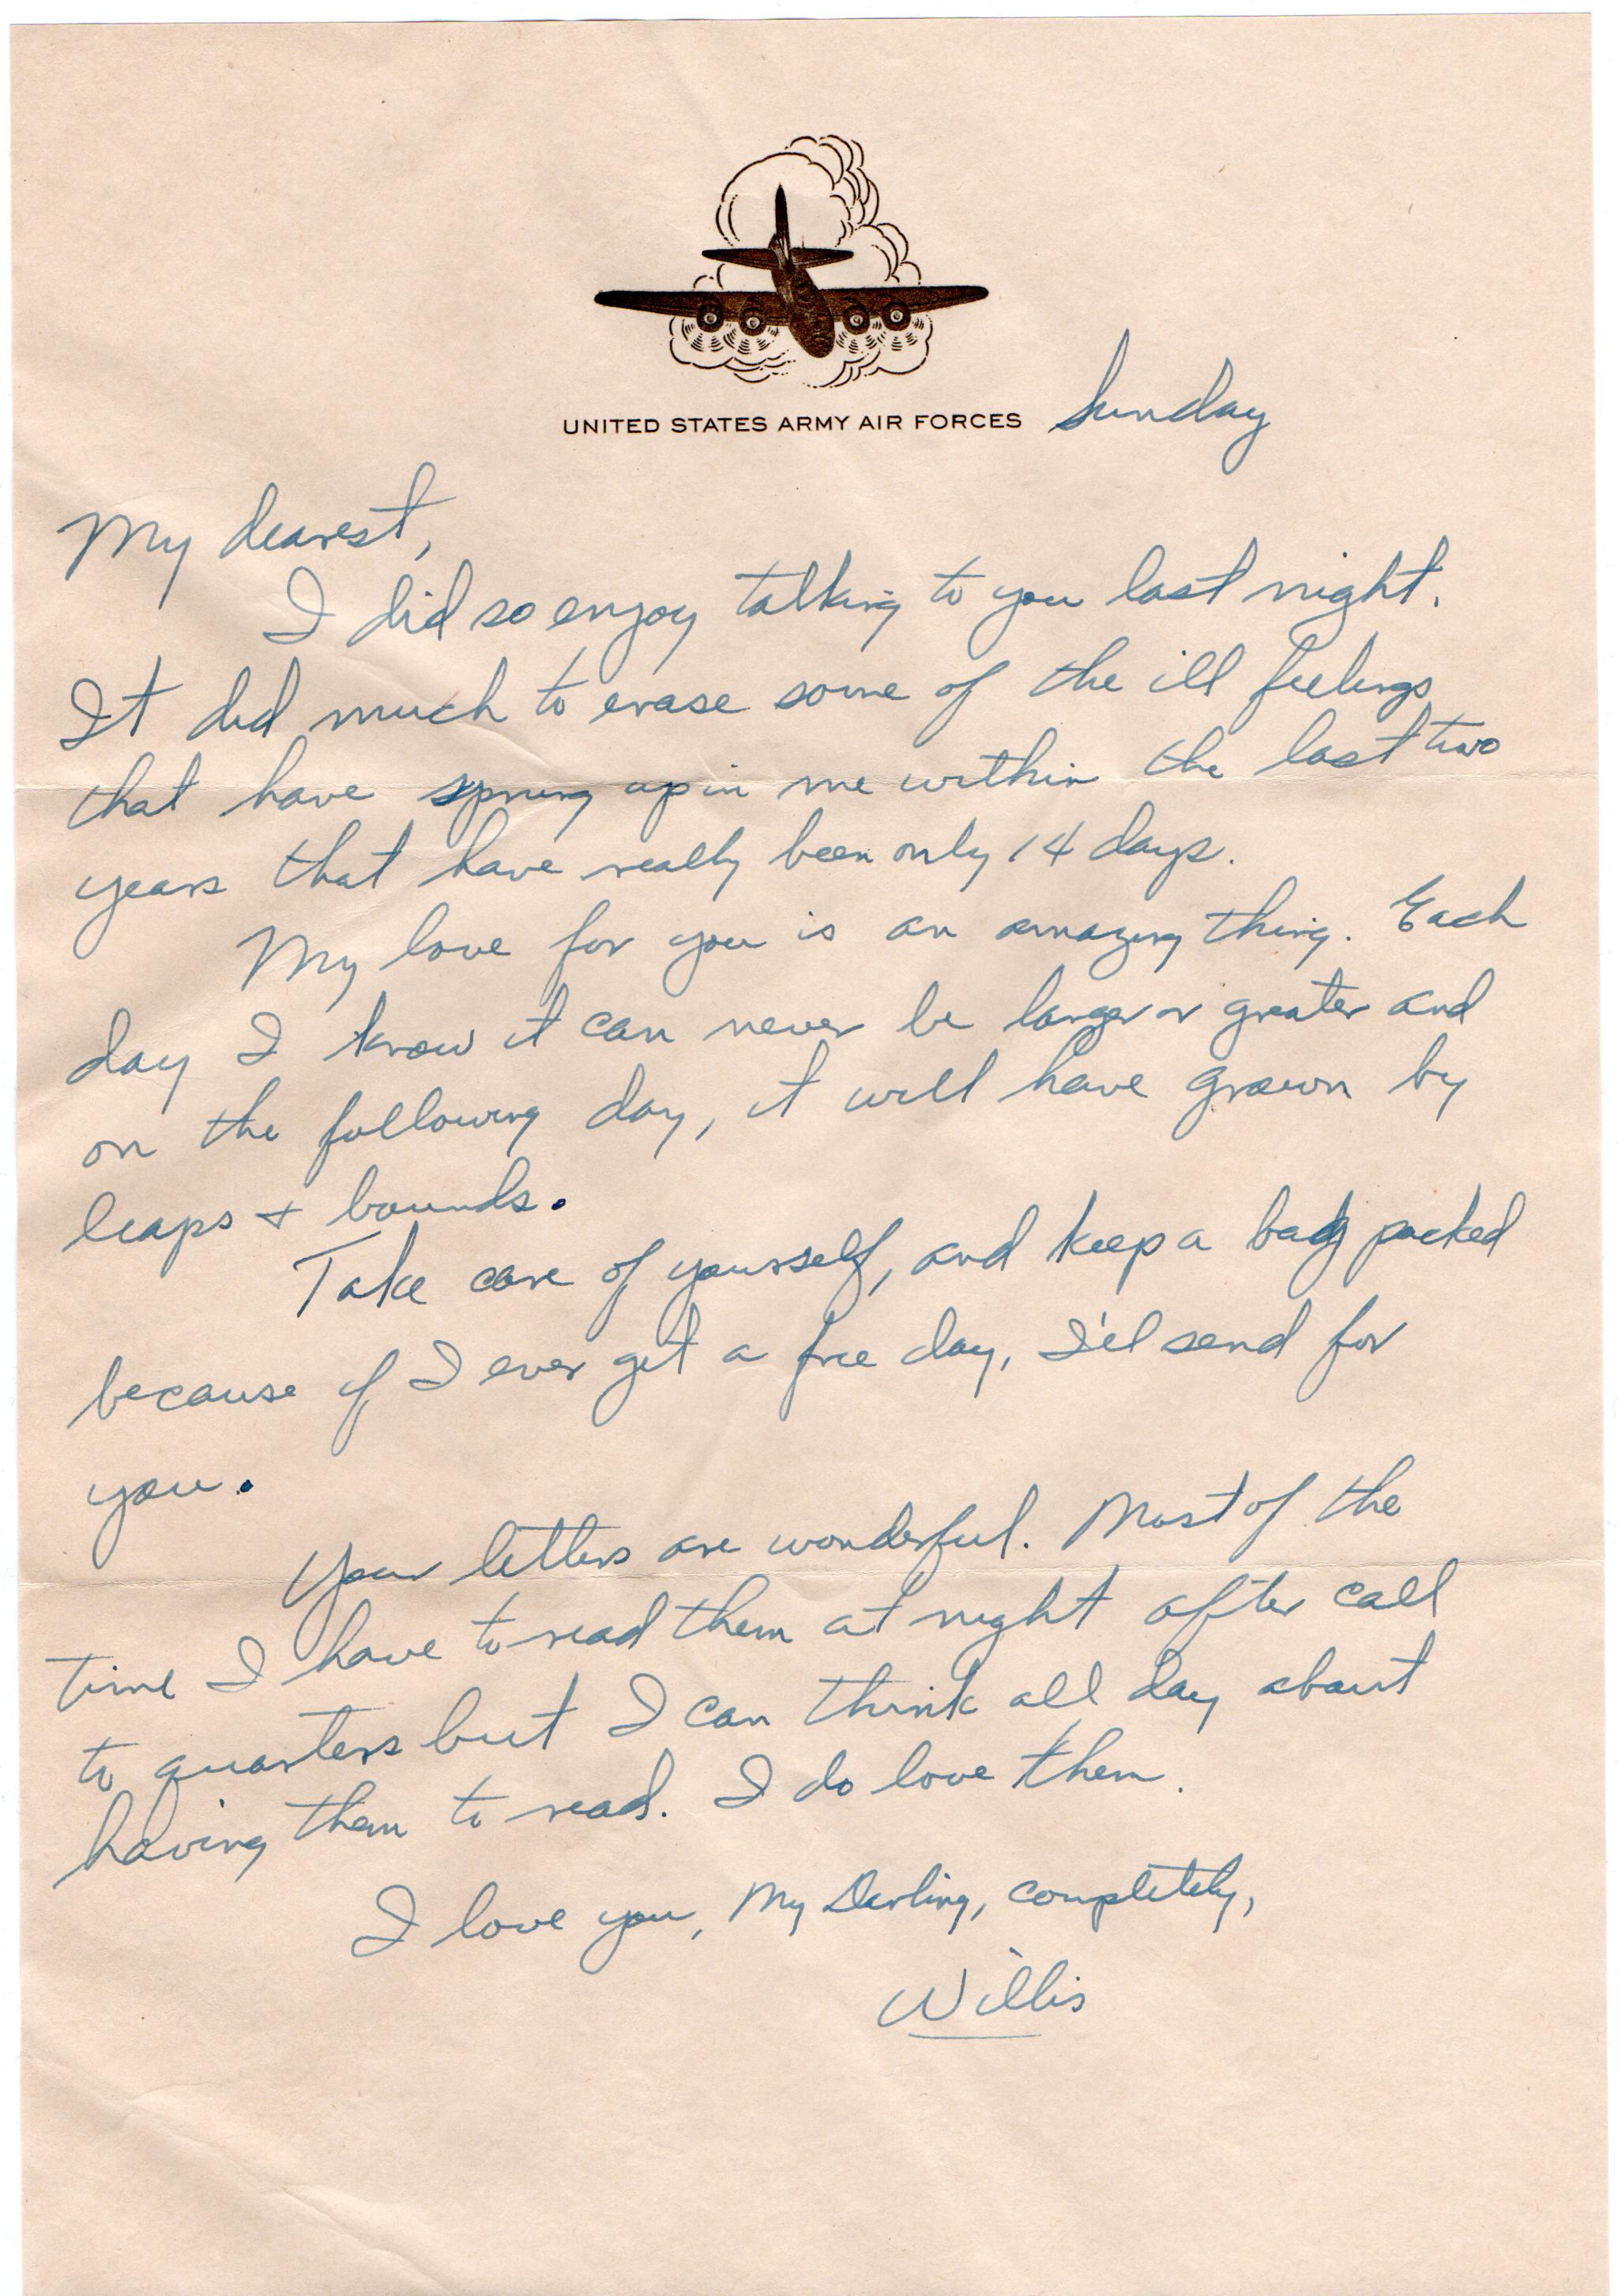 UNITED STATES ARMY AIR FORCES Sunday
My dearest,
I did so enjoy talking to you last night.
It did much to erase some of the ill feelings
that have sprung up in me within the last two
years that have really been only 14 days.
My love for you is an amazing thing. Each
day I know it can never be larger or greater and
on the following day, it will have grown by
leaps + bounds.
Take care of yourself, and keep a bag packed
because if I ever get a free day, I'll send for
you.
Your letters are wonderful. Most of the
time I have to read them at night after call
to quarters but I can think all day about
having them to read. I do love them.
I love you, My Darling, completely,
Willis